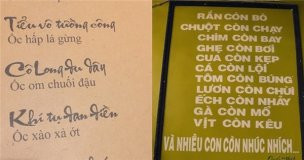 Tiểu vô tướng công
Ốc hấp lá gừng
Cô Long du đãng
Ốc om chuối đậu
Khí tụ đan điền
Ốc xào xả ớt
RẮN CÒN BÒ
CHUỘT CÒN CHẠY
CHIM CÒN BAY
GHẸ CÒN BƠI
CUA CÒN KẸP
CÁ CÒN LỘI
TÔM CÒN BÚNG
LƯƠN CÒN CHỬI
ẾCH CÒN NHẢY
GÀ CÒN MỔ
VỊT CÒN KÊU
VÀ NHIỀU CON CÒN NHÚC NHÍCH...